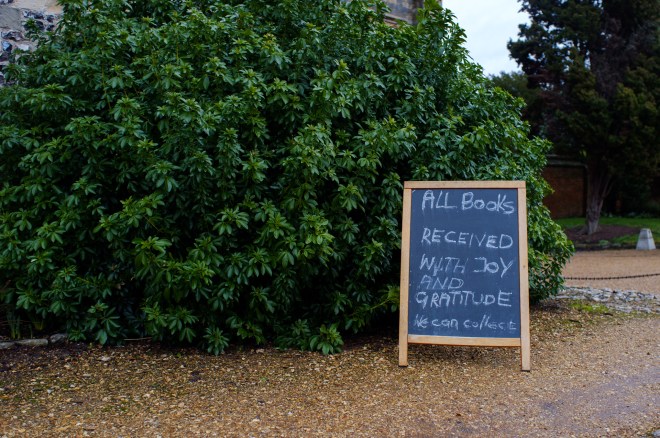 ALL BOOKS
RECEIVED
WITH JOY
AND
GRATITUDE
We can collect